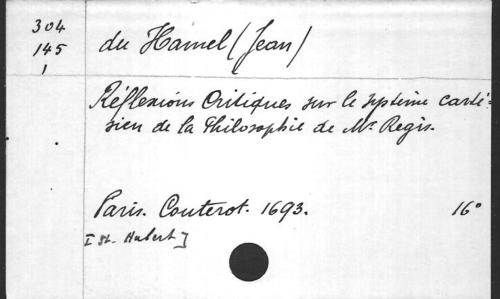 304
145
1
du Hamel (Jean)
Réflexions Critiques sur le système carté-
sien de la Philosophie de Mr. Regis.
Paris. Couterot. 1693. 16°
[St. Hubert]